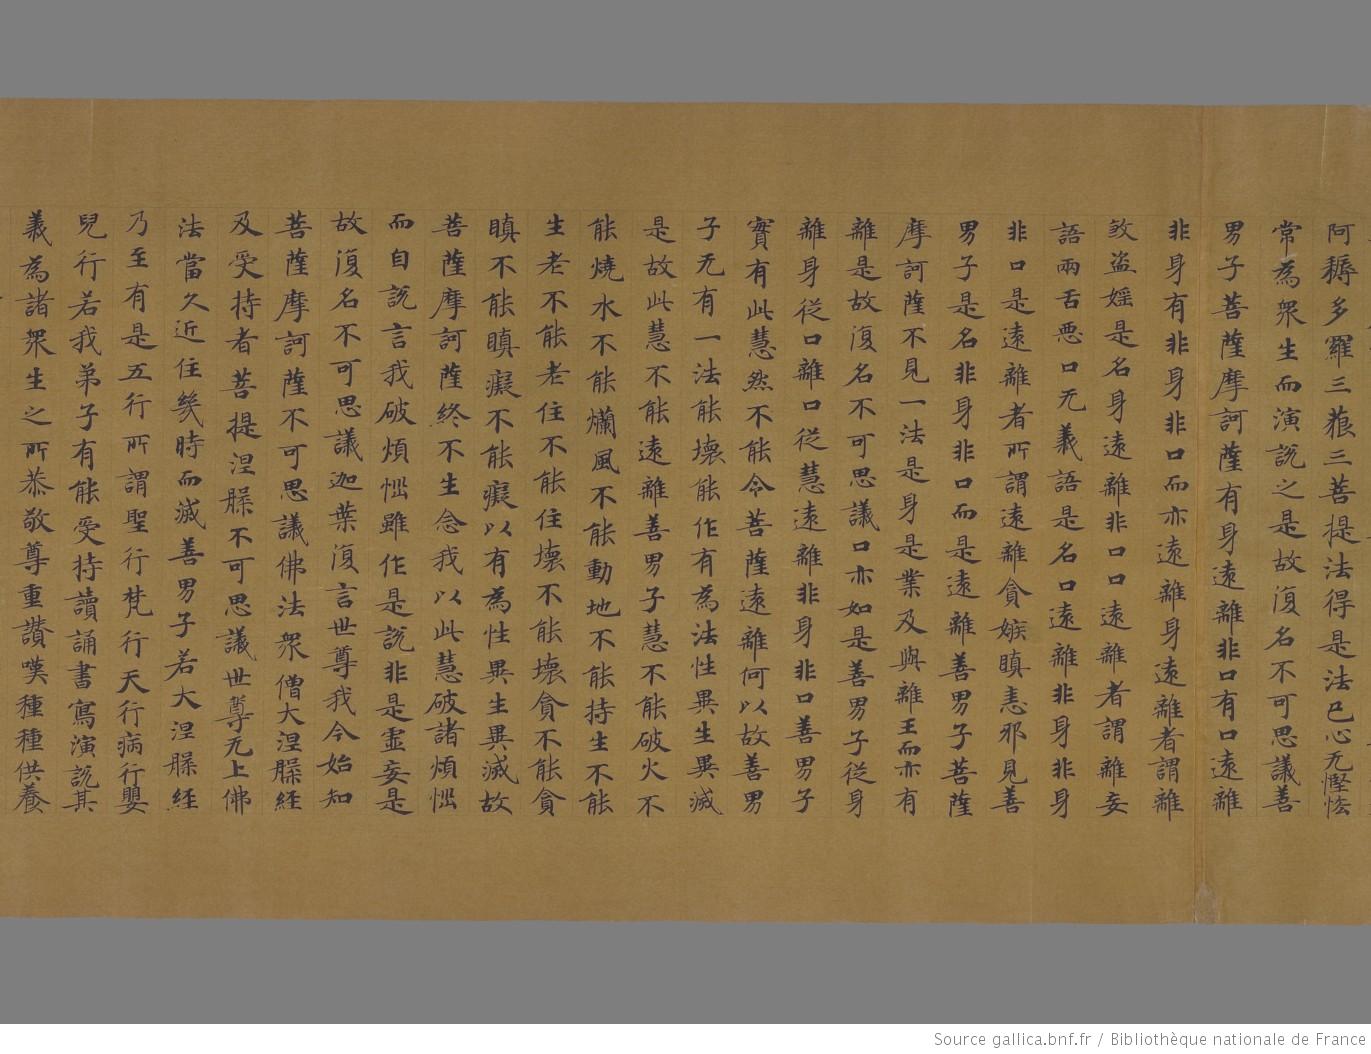 阿耨多羅三藐三菩提法得是法已心无慳悋
常為衆生而演説之是故復名不可思議善
男子菩薩摩訶薩有身遠離非口有口遠離
非身有非身非口而亦遠離身遠離者謂離
煞盗婬是名身遠離非口口遠離者謂離妄
語兩舌悪口无義語是名口遠離非身非身
非口是遠離者所謂遠離貪嫉瞋恚邪見善
男子是名非身非口而是遠離善男子菩薩
摩訶薩不見一法是身是業及與離王而亦有
離是故復名不可思議口亦如是善男子従身
離身従口離口従慧遠離非身非口善男子
實有此慧然不能令菩薩遠離何以故善男
子无有一法能壊能作有為法性異生異滅
是故此慧不能遠離善男子慧不能破火不
能燒水不能爛風不能動地不能持生不能
生老不能老住不能住壊不能壊貪不能貪
瞋不能瞋癡不能癡以有為性異生異滅故
菩薩摩訶薩終不生念我以此慧破諸煩惱
而自説言我破煩惱雖作是説非是虚妄是
故復名不可思議迦葉復言世尊我今始知
菩薩摩訶薩不可思議佛法衆僧大涅槃経
及受持者菩提涅槃不可思議世尊无上佛
法當久近住幾時而滅善男子若大涅槃経
乃至有是五行所謂聖行梵行天行病行嬰
兒行若我弟子有能受持讀誦書寫演説其
義為諸衆生之所恭敬尊重讃嘆種種供養
Source gallica.bnf.fr / Bibliothèque nationale de France